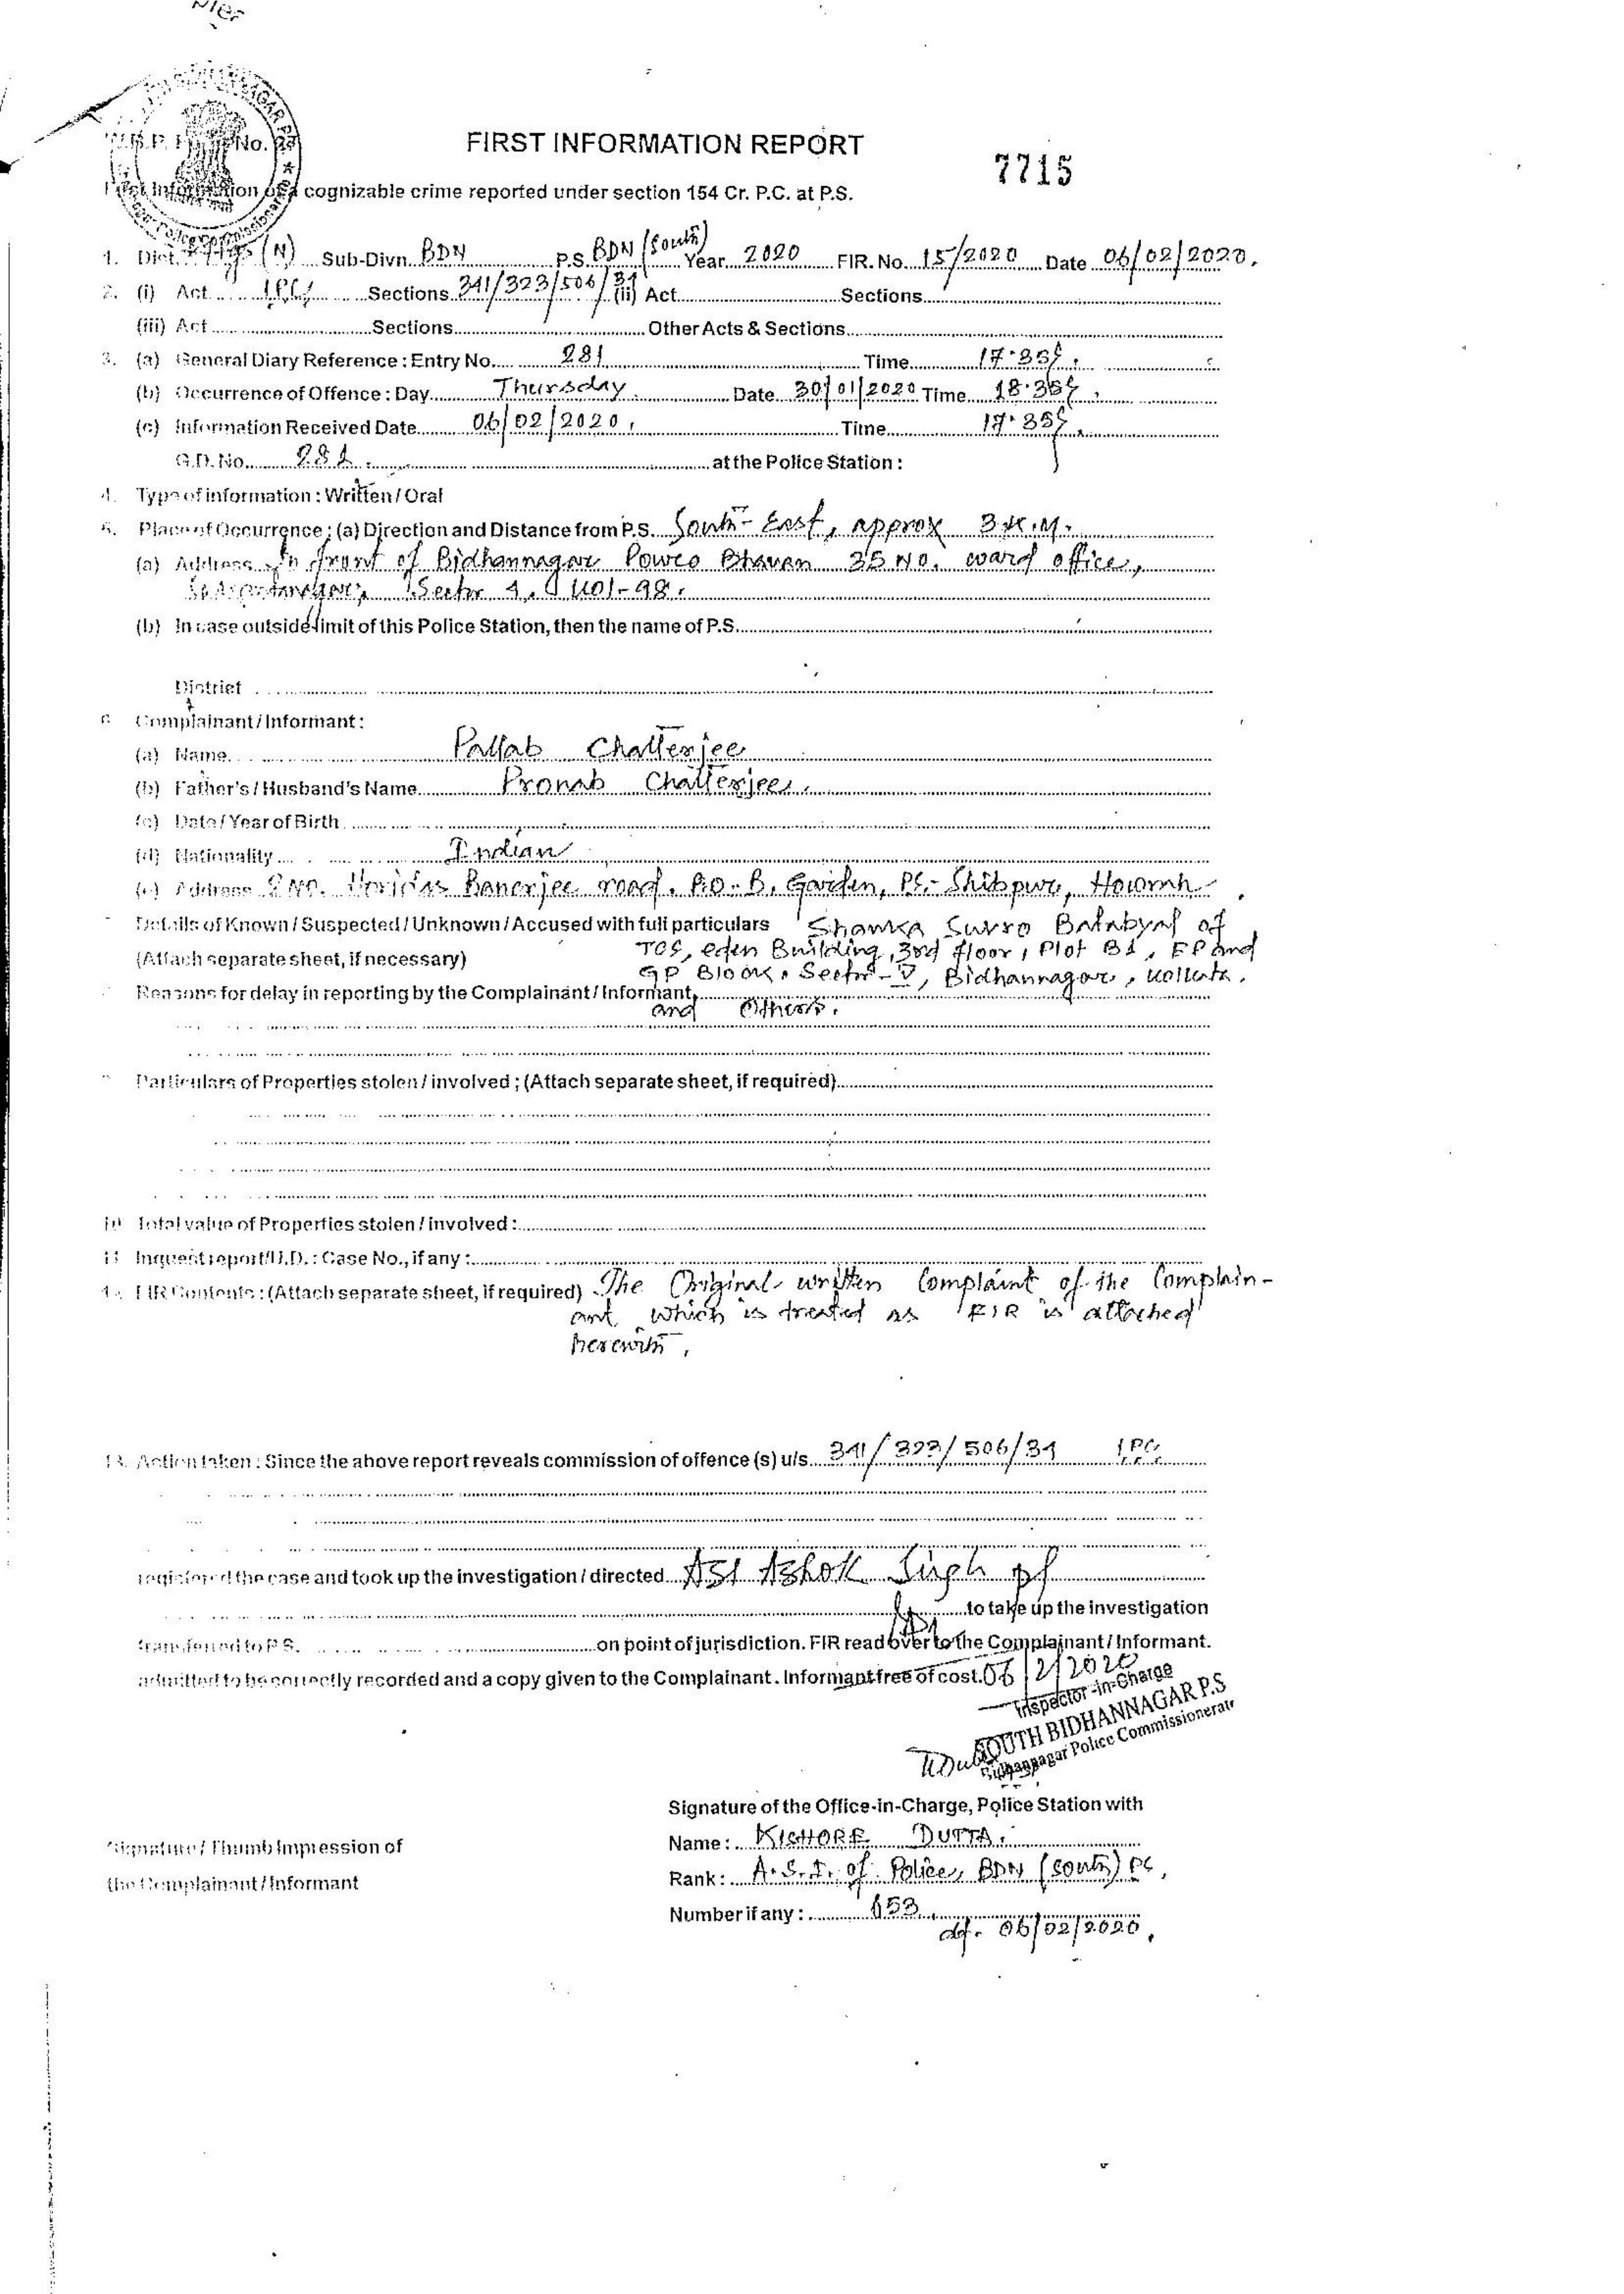 FIRST INFORMATION REPORT
7715
First Information of a cognizable crime reported under section 154 Cr. P.C. at P.S.
1. Dist. (N) Sub-Divn. BDN P.S. BDN (South) Year 2020 FIR. No. 15/2020 Date 06/02/2020.
2. (i) Act IPC Sections 341/323/506/34 (ii) Act Sections
(iii) Act Sections Other Acts & Sections
3. (a) General Diary Reference : Entry No. 281 Time 17.35
(b) Occurrence of Offence : Day Thursday Date 30/01/2020 Time 18.35
(c) Information Received Date 06/02/2020, Time 17.35
G.D. No. 281. at the Police Station :
4. Type of information : Written / Oral
5. Place of Occurrence : (a) Direction and Distance from P.S. South-East, approx 3 K.M.
(a) Address In front of Bidhannagar Bhavan 35 No. ward office,
Kol-98.
(b) In case outside limit of this Police Station, then the name of P.S.
District
6. Complainant / Informant :
(a) Name Pallab Chatterjee
(b) Father's / Husband's Name Pronab Chatterjee,
(c) Date / Year of Birth
(d) Nationality Indian
(e) Address 2 No. Haridas Banerjee road. P.O- B. Garden, PS- Shibpur, Howrah.
Details of Known / Suspected / Unknown / Accused with full particulars Batabyal of
(Attach separate sheet, if necessary) TCS, eden Building, 3rd floor, Plot B1, EP and
GP Block, Sector-V, Bidhannagar, Kolkata.
Reasons for delay in reporting by the Complainant / Informant
and Others.
Particulars of Properties stolen / involved ; (Attach separate sheet, if required)
10 Total value of Properties stolen / involved :
11 Inquest report/U.D. : Case No., if any :
12. FIR Contents : (Attach separate sheet, if required) The Original written Complaint of the Complain-
ant which is treated as FIR is attached
herewith,
13. Action taken : Since the above report reveals commission of offence (s) u/s. 341/323/506/34 IPC
registered the case and took up the investigation / directed ASI Ashok Singh of
to take up the investigation
transferred to P.S. on point of jurisdiction. FIR read over to the Complainant / Informant.
admitted to be correctly recorded and a copy given to the Complainant. Informant free of cost. 06/2/2020
Inspector-in-Charge
SOUTH BIDHANNAGAR P.S
Bidhannagar Police Commissionerate
Signature of the Office-in-Charge, Police Station with
Signature / Thumb Impression of
the Complainant / Informant
Name : KISHORE DUTTA.
Rank : A.S.I. of Police, BDN (South) PS,
Number if any : 653
dt. 06/02/2020.